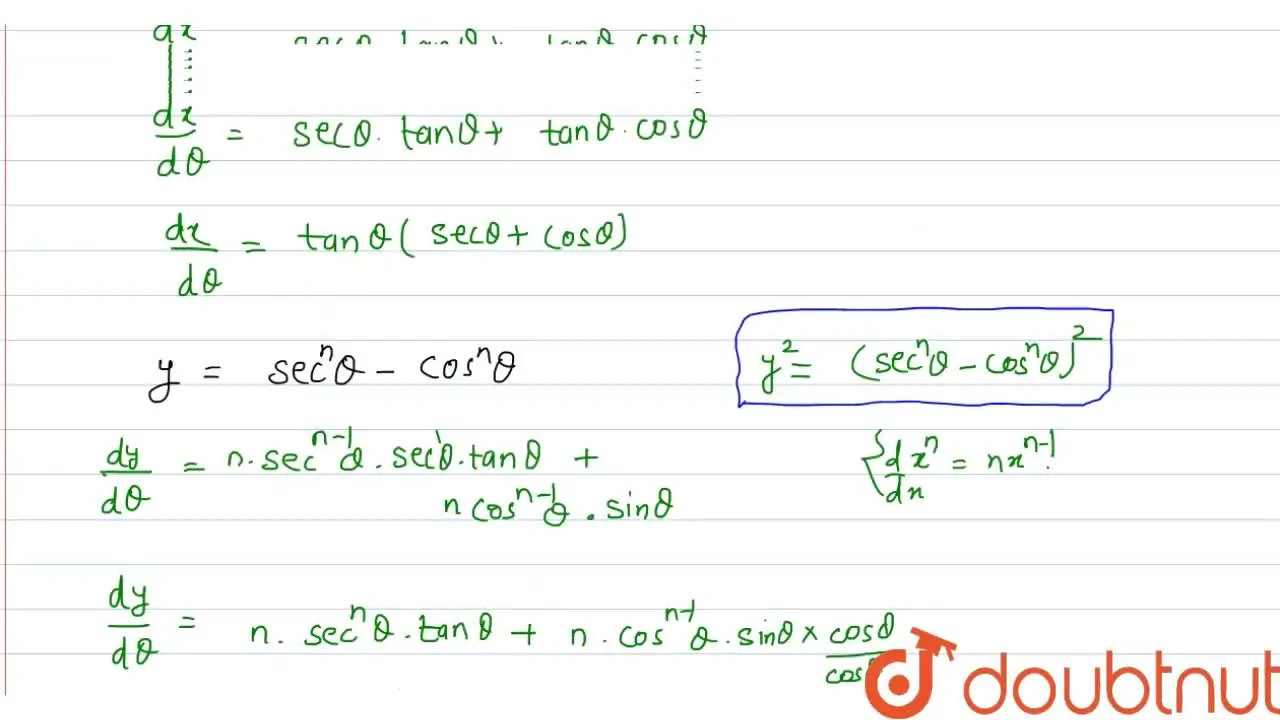 dx
dx/dθ = secθ. tanθ + tanθ. cosθ
dx/dθ = tanθ ( secθ + cosθ)
y = secⁿθ - cosⁿθ
y² = (secⁿθ - cosⁿθ)²
dy/dθ = n. secⁿ⁻¹θ. sec¹θ. tanθ +
n cosⁿ⁻¹θ . sinθ
{ d/dx xⁿ = nxⁿ⁻¹.
dy/dθ = n. secⁿθ. tanθ + n. cosⁿ⁻¹θ. sinθ × cosθ/cos
doubtnut